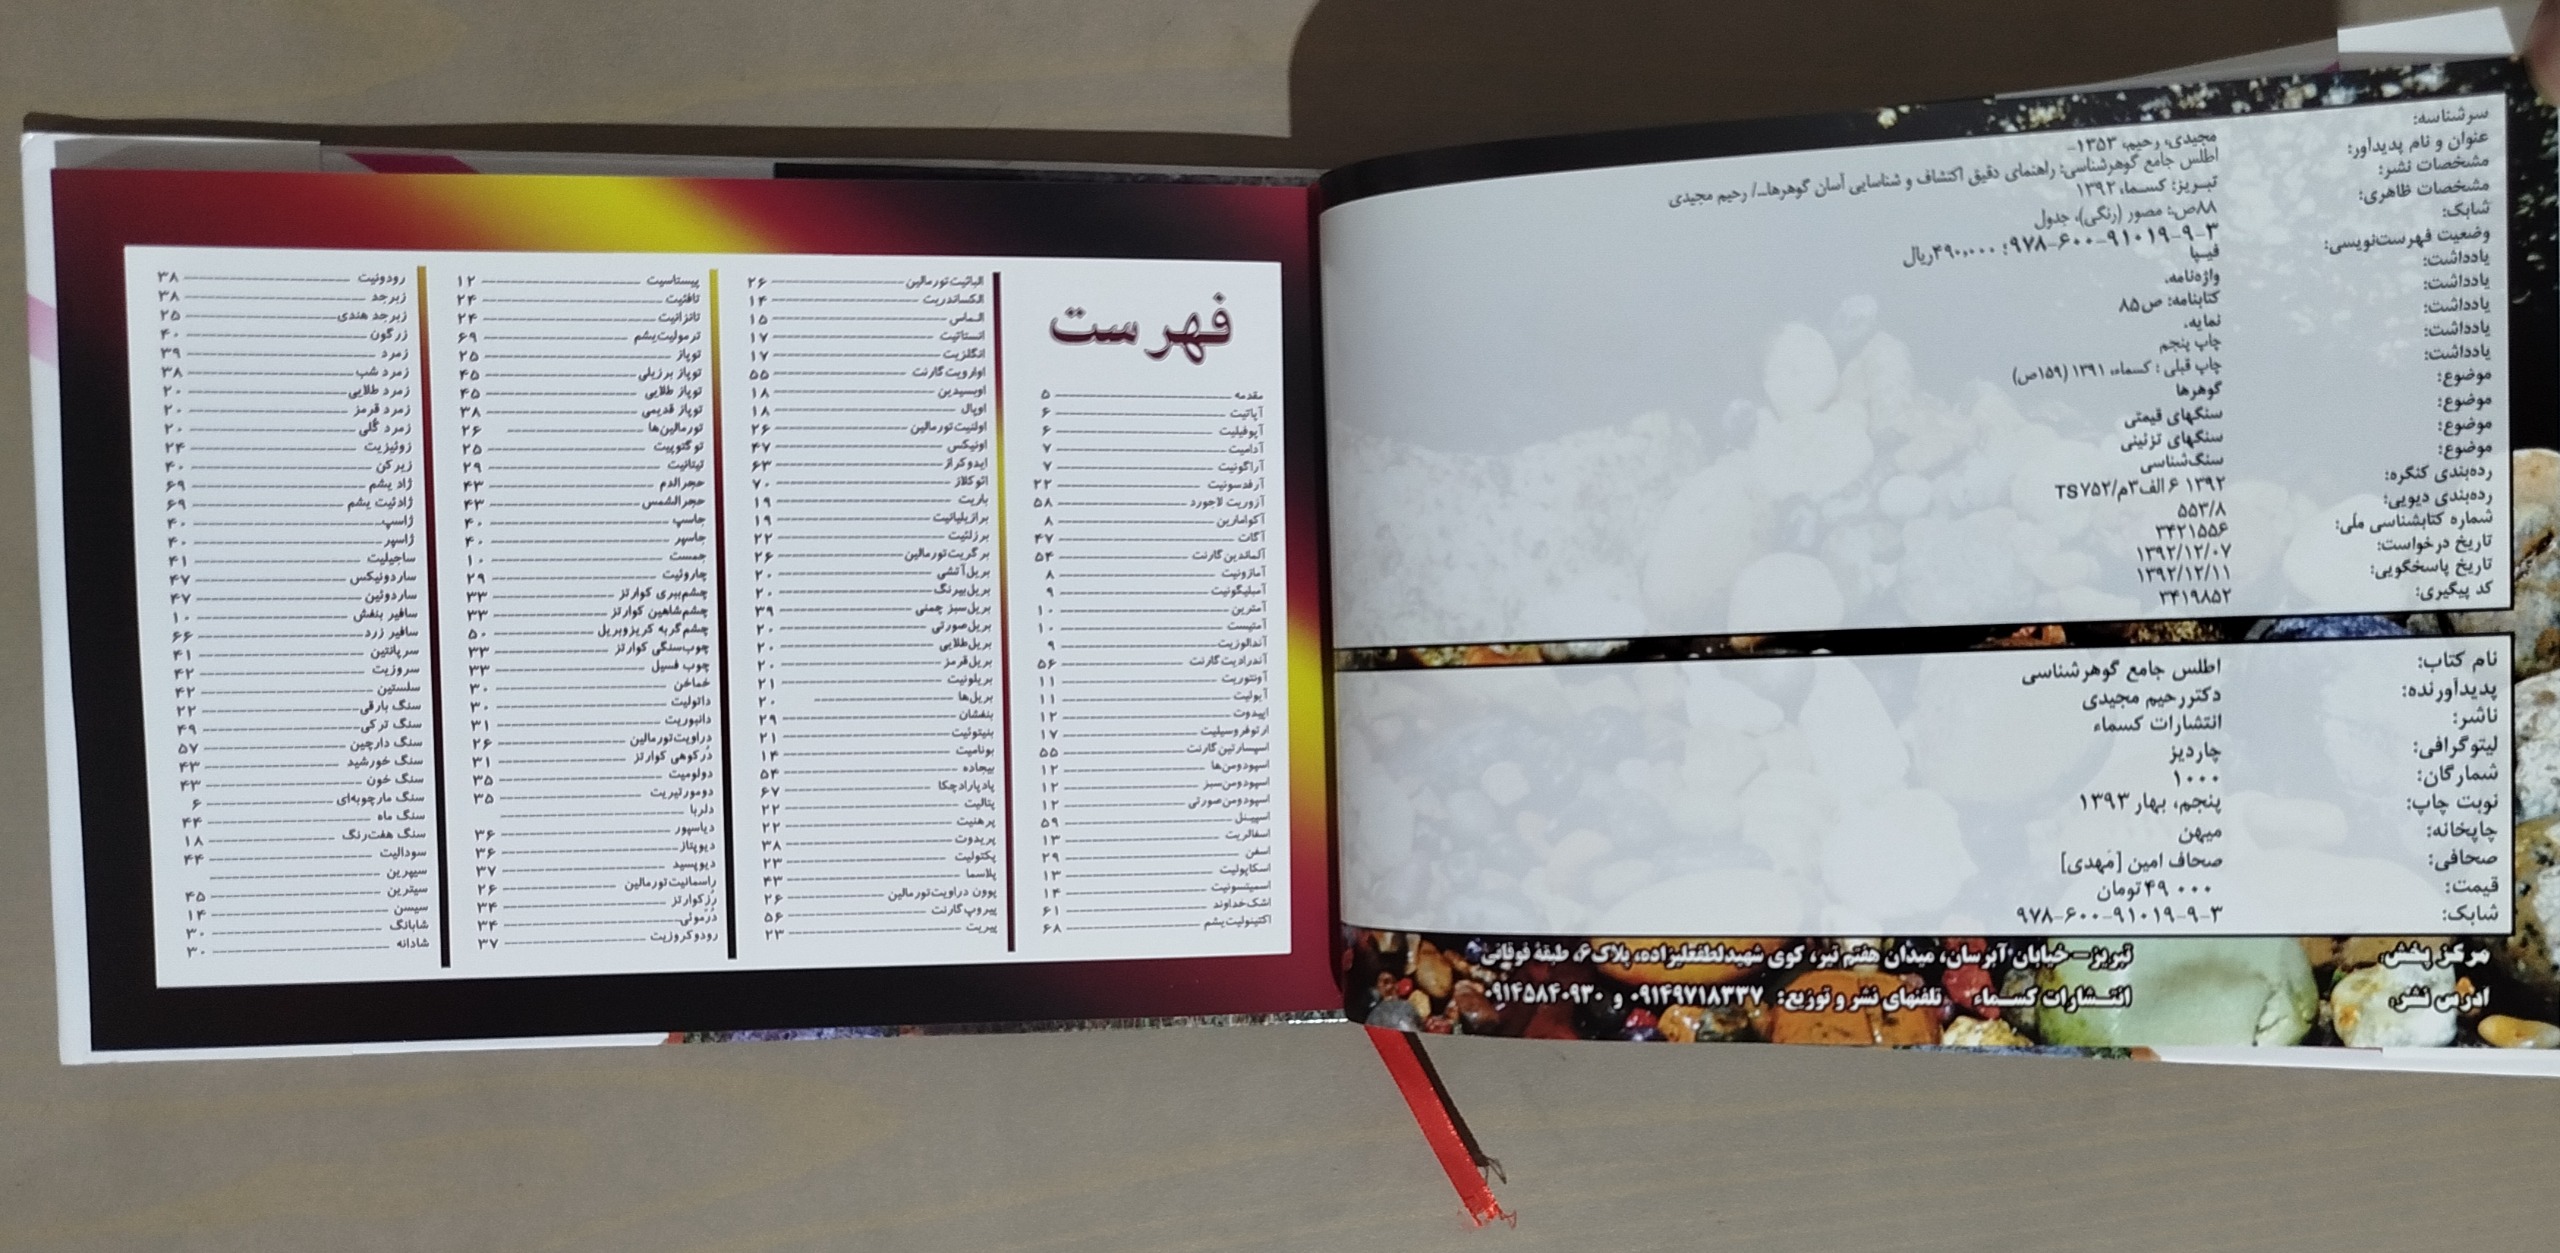 سرشناسه: مجیدی، رحیم، ۱۳۵۳-
عنوان و نام پدیدآور: اطلس جامع گوهرشناسی: راهنمای دقیق اکتشاف و شناسایی آسان گوهرها.../ رحیم مجیدی
مشخصات نشر: تبریز: کسماء، ۱۳۹۲
مشخصات ظاهری: ۸۸ص: مصور (رنگی)، جدول
شابک: ۹۷۸-۶۰۰-۹۱۰۱۹-۹-۳؛ ۴۹۰,۰۰۰ریال
وضعیت فهرست‌نویسی: فیپا
یادداشت: واژه‌نامه.
یادداشت: کتابنامه: ص۸۵
یادداشت: نمایه.
یادداشت: چاپ پنجم
یادداشت: چاپ قبلی : کسماء، ۱۳۹۱ (۱۵۹ص)
موضوع: گوهرها
موضوع: سنگهای قیمتی
موضوع: سنگهای تزئینی
موضوع: سنگ‌شناسی
رده‌بندی کنگره: ۱۳۹۲ ۶الف۳م/TS۷۵۲
رده‌بندی دیویی: ۵۵۳/۸
شماره کتابشناسی ملی: ۳۴۲۱۵۵۶
تاریخ درخواست: ۱۳۹۲/۱۲/۰۷
تاریخ پاسخگویی: ۱۳۹۲/۱۲/۱۱
کد پیگیری: ۳۴۱۹۸۵۲
نام کتاب: اطلس جامع گوهرشناسی
پدیدآورنده: دکتر رحیم مجیدی
ناشر: انتشارات کسماء
لیتوگرافی: چاردیز
شمارگان: ۱۰۰۰
نوبت چاپ: پنجم، بهار ۱۳۹۳
چاپخانه: میهن
صحافی: صحاف امین [مَهدی]
قیمت: ۴۹۰۰۰تومان
شابک: ۹۷۸-۶۰۰-۹۱۰۱۹-۹-۳
مرکز پخش: تبریز-خیابان آبرسان، میدان هفتم تیر، کوی شهید لطفعلیزاده، پلاک۶، طبقهٔ فوقانی
آدرس نشر: انتشارات کسماء تلفنهای نشر و توزیع: ۰۹۱۴۹۷۱۸۳۳۷ و ۰۹۱۴۵۸۴۰۹۳۰
فهرست
مقدمه ۵
آپاتیت ۶
آپوفیلیت ۶
آدامیت ۷
آراگونیت ۷
آرفدسونیت ۲۲
آزوریت لاجورد ۵۸
آکوامارین ۸
آگات ۴۷
آلماندین گارنت ۵۴
آمازونیت ۸
آمبلیگونیت ۹
آمترین ۱۰
آمتیست ۱۰
آندالوزیت ۹
آندرادیت گارنت ۵۶
آونتوریت ۱۱
آیولیت ۱۱
اپیدوت ۱۲
ارتوفروسیلیت ۱۷
اسپسارتین گارنت ۵۵
اسپودومن‌ها ۱۲
اسپودومن سبز ۱۲
اسپودومن صورتی ۱۲
اسپینل ۵۹
اسفالریت ۱۳
اسفن ۲۹
اسکاپولیت ۱۳
اسمیتسونیت ۱۴
اشک خداوند ۶۱
اکتینولیت یشم ۶۸
الباثیت تورمالین ۲۶
الکساندریت ۱۴
الماس ۱۵
انستاتیت ۱۷
انگلزیت ۱۷
اوارویت گارنت ۵۵
اوبسیدین ۱۸
اوپال ۱۸
اولنیت تورمالین ۲۶
اونیکس ۴۷
ایدوکراز ۶۳
ائوکلاز ۷۰
باریت ۱۹
برازیلیانیت ۱۹
برزلئیت ۲۲
برگریت تورمالین ۲۶
بریل آتشی ۲۰
بریل بیرنگ ۲۰
بریل سبز چمنی ۳۹
بریل صورتی ۲۰
بریل طلایی ۲۰
بریل قرمز ۲۰
بریلونیت ۲۱
بریل‌ها ۲۰
بنفشان ۲۹
بنیتوئیت ۲۱
بونامیت ۱۴
بیجاده ۵۴
پادپارادچکا ۶۷
پتالیت ۲۲
پرهنیت ۲۲
پریدوت ۳۸
پکتولیت ۲۳
پلاسما ۴۳
پوون دراویت تورمالین ۲۶
پیروپ گارنت ۵۶
پیریت ۲۳
پیستاسیت ۱۲
تافئیت ۲۴
تانزانیت ۲۴
ترمولیت یشم ۶۹
توپاز ۲۵
توپاز برزیلی ۴۵
توپاز طلایی ۴۵
توپاز قدیمی ۳۸
تورمالین‌ها ۲۶
توگتوپیت ۲۵
تیتانیت ۲۹
حجرالدم ۴۳
حجرالشمس ۴۳
جاسپ ۴۰
جاسپر ۴۰
جمست ۱۰
چاروئیت ۲۹
چشم ببری کوارتز ۳۳
چشم شاهین کوارتز ۳۳
چشم گربه کریزوبریل ۵۰
چوب سنگی کوارتز ۳۳
چوب فسیل ۳۳
خماخن ۳۰
داتولیت ۳۰
دانبوریت ۳۱
دراویت تورمالین ۲۶
دُر کوهی کوارتز ۳۱
دولومیت ۳۵
دومورتیریت ۳۵
دلربا
دیاسپور ۳۶
دیوپتاز ۳۶
دیوپسید ۳۷
راسمانیت تورمالین ۲۶
رُز کوارتز ۳۴
دُرّموئی ۳۴
رودوکروزیت ۳۷
رودونیت ۳۸
زبرجد ۳۸
زبرجد هندی ۲۵
زرگون ۴۰
زمرد ۳۹
زمرد شب ۳۸
زمرد طلایی ۲۰
زمرد قرمز ۲۰
زمرد گُلی ۲۰
زوئیزیت ۲۴
زیرکن ۴۰
ژاد یشم ۶۹
ژادئیت یشم ۶۹
ژاسپ ۴۰
ژاسپر ۴۰
ساجیلیت ۴۱
ساردونیکس ۴۷
ساردوئین ۴۷
سافیر بنفش ۱۰
سافیر زرد ۶۶
سرپانتین ۴۱
سروزیت ۴۲
سلستین ۴۲
سنگ بارقی ۲۲
سنگ ترکی ۴۹
سنگ دارچین ۵۷
سنگ خورشید ۴۳
سنگ خون ۴۳
سنگ مارچوبه‌ای ۶
سنگ ماه ۴۴
سنگ هفت‌رنگ ۱۸
سودالیت ۴۴
سیپرین
سیترین ۴۵
سیسن ۱۴
شابانگ ۳۰
شادانه ۳۰